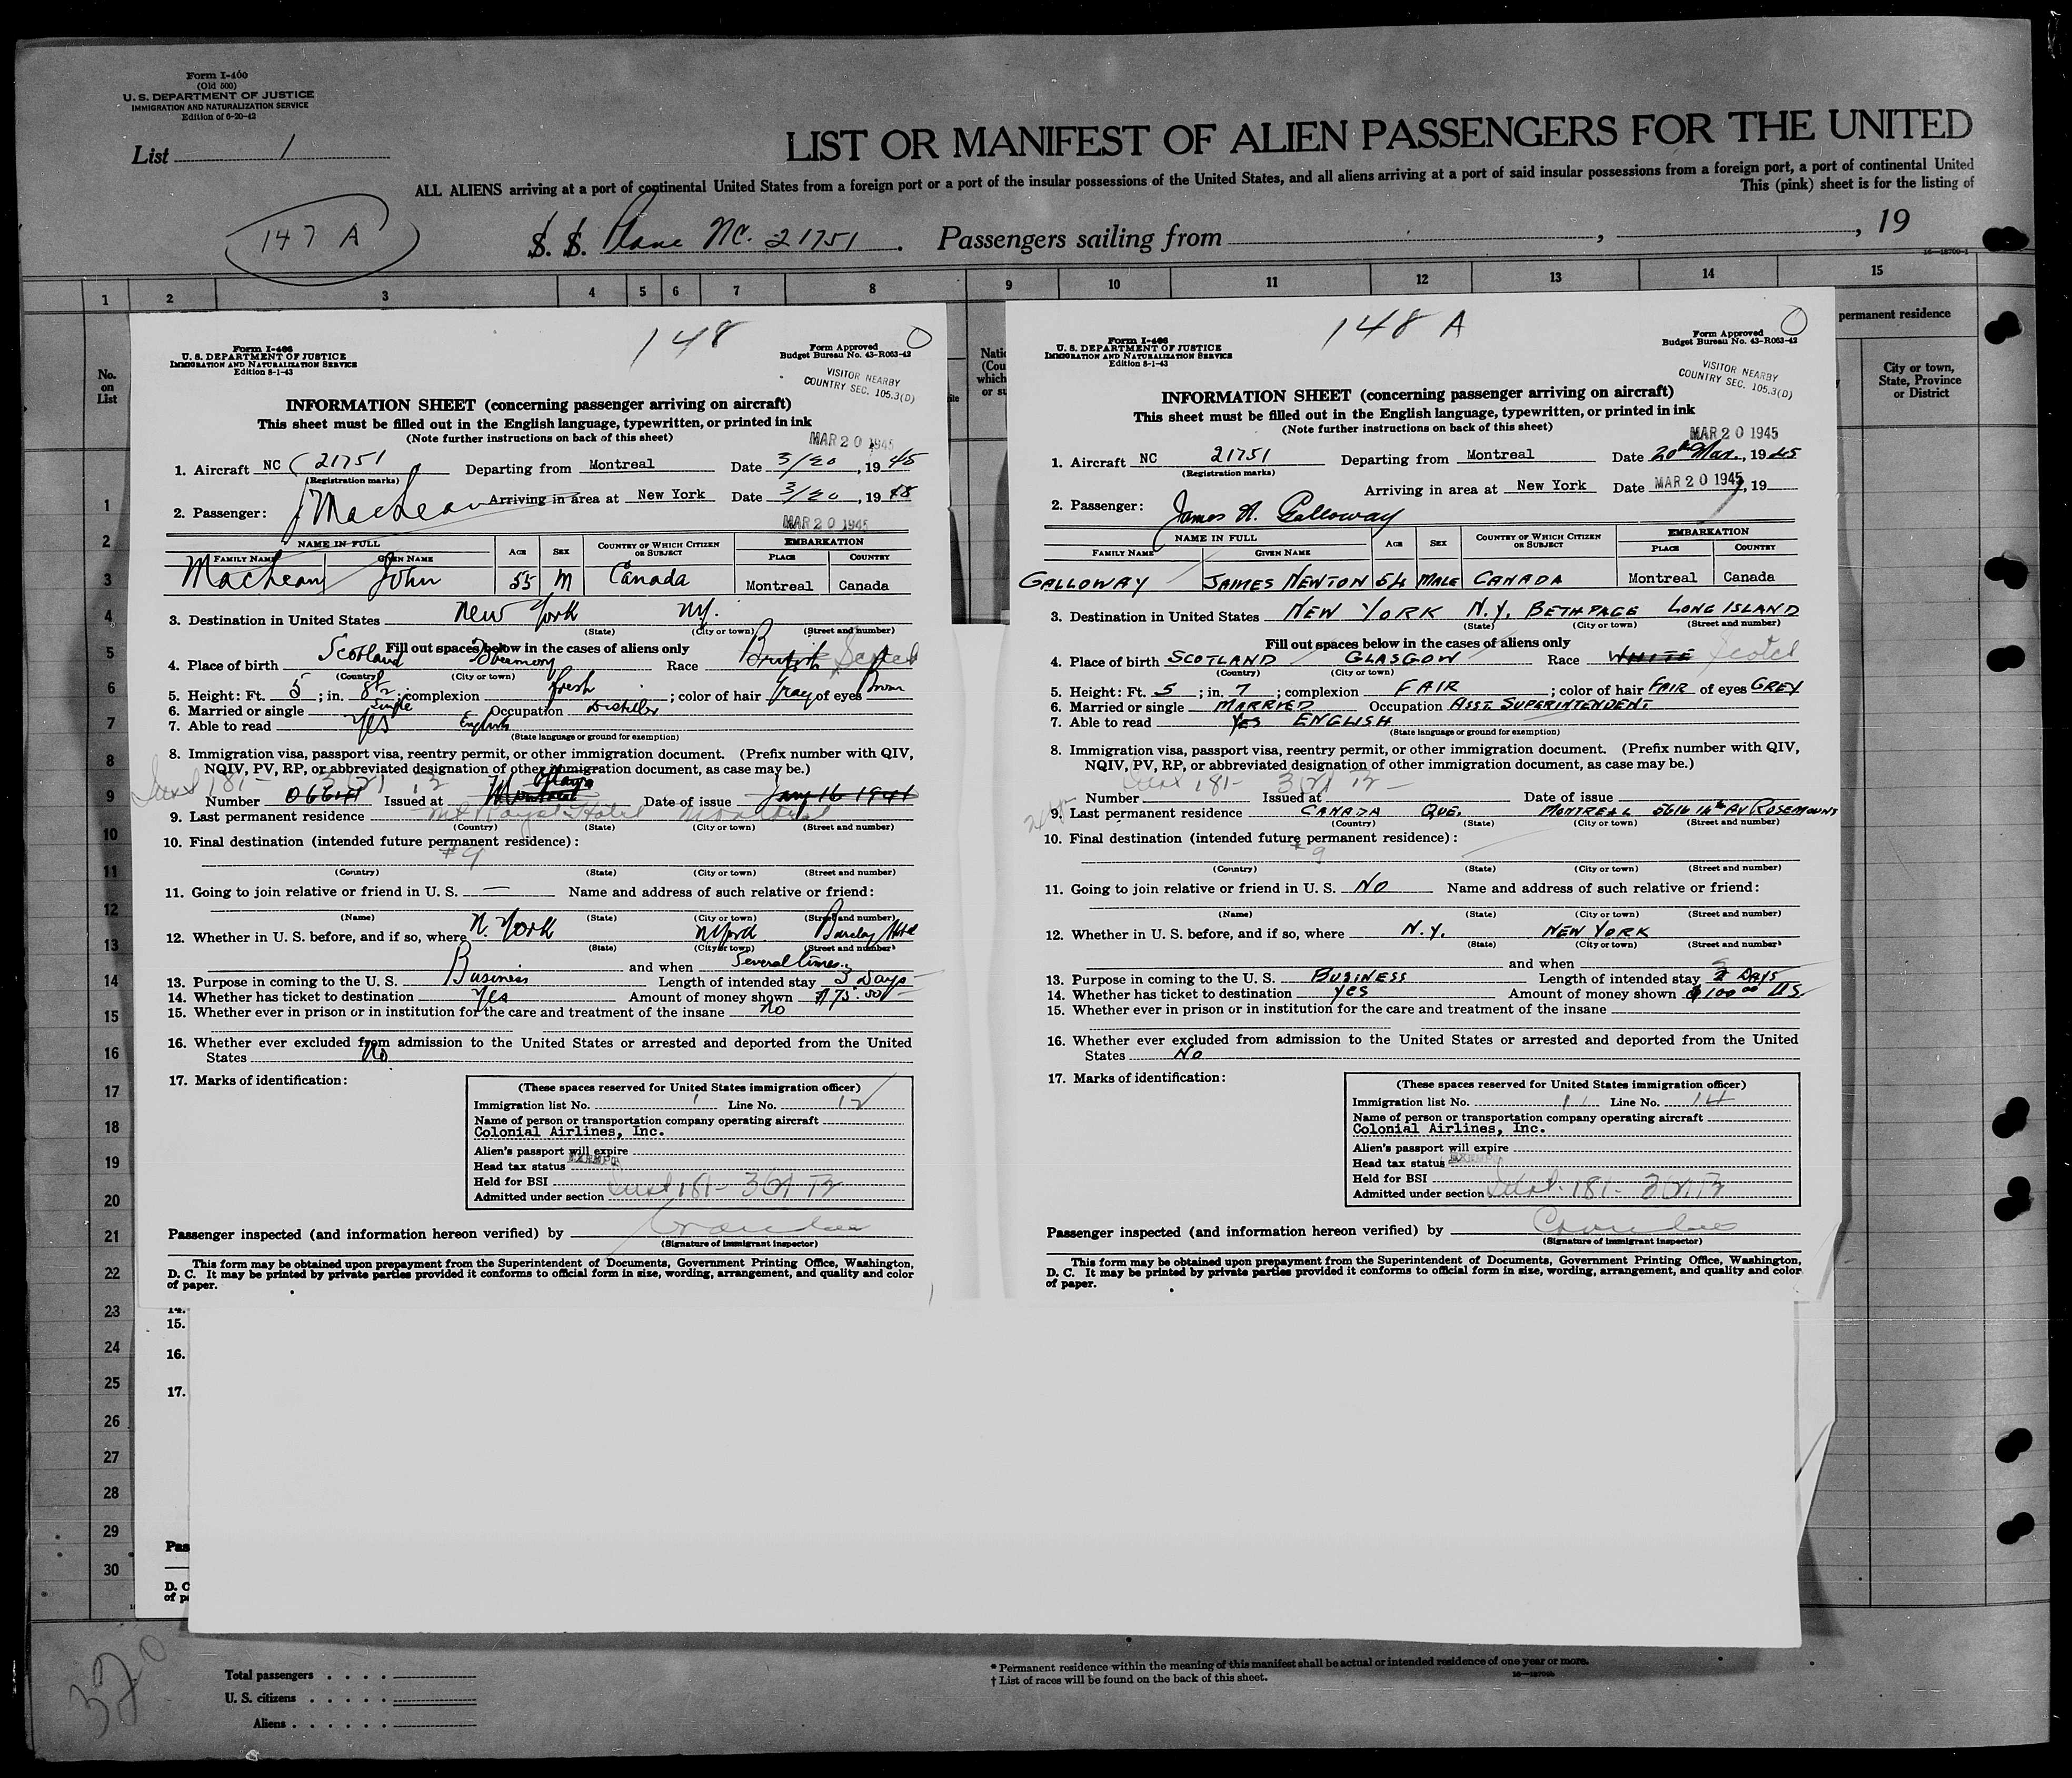 Form I-400
(Old 500)
U. S. DEPARTMENT OF JUSTICE
IMMIGRATION AND NATURALIZATION SERVICE
Edition of 6-20-42
List 1
LIST OR MANIFEST OF ALIEN PASSENGERS FOR THE UNITED
ALL ALIENS arriving at a port of continental United States from a foreign port or a port of the insular possessions of the United States, and all aliens arriving at a port of said insular possessions from a foreign port, a port of continental United
This (pink) sheet is for the listing of
147 A
S. S. Plane NC. 21751. Passengers sailing from , , 19
16—18700-1
1 2 3 4 5 6 7 8 9 10 11 12 13 14 15
No. on List
permanent residence
City or town, State, Province or District
148
Form I-466
U. S. DEPARTMENT OF JUSTICE
IMMIGRATION AND NATURALIZATION SERVICE
Edition 8-1-43
Form Approved
Budget Bureau No. 43-R063-42
VISITOR NEARBY
COUNTRY SEC. 105.3(D)
INFORMATION SHEET (concerning passenger arriving on aircraft)
This sheet must be filled out in the English language, typewritten, or printed in ink
(Note further instructions on back of this sheet)
MAR 20 1945
1. Aircraft NC 21751 Departing from Montreal Date 3/20, 19 45
(Registration marks)
Arriving in area at New York Date 3/20, 19 48
2. Passenger: J MacLean
MAR 20 1945
NAME IN FULL AGE SEX COUNTRY OF WHICH CITIZEN OR SUBJECT EMBARKATION
FAMILY NAME GIVEN NAME PLACE COUNTRY
MacLean John 55 M Canada Montreal Canada
3. Destination in United States New York NY.
(State) (City or town) (Street and number)
Fill out spaces below in the cases of aliens only
4. Place of birth Scotland Tobermory Race British Scotch
(Country) (City or town)
5. Height: Ft. 5; in. 8½; complexion fresh; color of hair Gray of eyes Brown
6. Married or single Single Occupation Distiller
7. Able to read Yes English
(State language or ground for exemption)
8. Immigration visa, passport visa, reentry permit, or other immigration document. (Prefix number with QIV,
NQIV, PV, RP, or abbreviated designation of other immigration document, as case may be.)
Number Issued at Montreal Ottawa Date of issue Jany 16 1941
9. Last permanent residence Mt Royal Hotel Montreal
(Country) (State) (City or town) (Street and number)
10. Final destination (intended future permanent residence):
#9
(Country) (State) (City or town) (Street and number)
11. Going to join relative or friend in U. S. — Name and address of such relative or friend:
(Name) (State) (City or town) (Street and number)
12. Whether in U. S. before, and if so, where N. York Barclay Hotel
(State) (City or town) (Street and number)
and when Several times.
13. Purpose in coming to the U. S. Business Length of intended stay 3 Days
14. Whether has ticket to destination Yes Amount of money shown $75.00
15. Whether ever in prison or in institution for the care and treatment of the insane no
16. Whether ever excluded from admission to the United States or arrested and deported from the United
States No
17. Marks of identification:
(These spaces reserved for United States immigration officer)
Immigration list No. 1 Line No. 12
Name of person or transportation company operating aircraft
Colonial Airlines, Inc.
Alien's passport will expire
Head tax status EXEMPT
Held for BSI
Admitted under section
Passenger inspected (and information hereon verified) by
(Signature of immigrant inspector)
This form may be obtained upon prepayment from the Superintendent of Documents, Government Printing Office, Washington,
D. C. It may be printed by private parties provided it conforms to official form in size, wording, arrangement, and quality and color
of paper.
148 A
Form I-466
U. S. DEPARTMENT OF JUSTICE
IMMIGRATION AND NATURALIZATION SERVICE
Edition 8-1-43
Form Approved
Budget Bureau No. 43-R063-42
VISITOR NEARBY
COUNTRY SEC. 105.3(D)
INFORMATION SHEET (concerning passenger arriving on aircraft)
This sheet must be filled out in the English language, typewritten, or printed in ink
(Note further instructions on back of this sheet)
MAR 20 1945
1. Aircraft NC 21751 Departing from Montreal Date 20th Mar., 19 45
(Registration marks)
Arriving in area at New York Date MAR 20 1945, 19
2. Passenger: James N. Galloway
NAME IN FULL AGE SEX COUNTRY OF WHICH CITIZEN OR SUBJECT EMBARKATION
FAMILY NAME GIVEN NAME PLACE COUNTRY
GALLOWAY JAMES NEWTON 54 MALE CANADA Montreal Canada
3. Destination in United States NEW YORK N.Y. BETHPAGE LONG ISLAND
(State) (City or town) (Street and number)
Fill out spaces below in the cases of aliens only
4. Place of birth SCOTLAND GLASGOW Race WHITE Scotch
(Country) (City or town)
5. Height: Ft. 5; in. 7; complexion FAIR; color of hair FAIR of eyes GREY
6. Married or single MARRIED Occupation ASST. SUPERINTENDENT
7. Able to read YES ENGLISH
(State language or ground for exemption)
8. Immigration visa, passport visa, reentry permit, or other immigration document. (Prefix number with QIV,
NQIV, PV, RP, or abbreviated designation of other immigration document, as case may be.)
Number Issued at Date of issue
9. Last permanent residence CANADA QUE. MONTREAL 5616 16th AV ROSEMOUNT
(Country) (State) (City or town) (Street and number)
10. Final destination (intended future permanent residence):
#9
(Country) (State) (City or town) (Street and number)
11. Going to join relative or friend in U. S. NO Name and address of such relative or friend:
(Name) (State) (City or town) (Street and number)
12. Whether in U. S. before, and if so, where N.Y. NEW YORK
(State) (City or town) (Street and number)
and when
13. Purpose in coming to the U. S. BUSINESS Length of intended stay 2 DAYS
14. Whether has ticket to destination YES Amount of money shown $100.00 US.
15. Whether ever in prison or in institution for the care and treatment of the insane
16. Whether ever excluded from admission to the United States or arrested and deported from the United
States NO
17. Marks of identification:
(These spaces reserved for United States immigration officer)
Immigration list No. 1 Line No. 14
Name of person or transportation company operating aircraft
Colonial Airlines, Inc.
Alien's passport will expire
Head tax status EXEMPT
Held for BSI
Admitted under section
Passenger inspected (and information hereon verified) by
(Signature of immigrant inspector)
This form may be obtained upon prepayment from the Superintendent of Documents, Government Printing Office, Washington,
D. C. It may be printed by private parties provided it conforms to official form in size, wording, arrangement, and quality and color
of paper.
1
2
3
4
5
6
7
8
9
10
11
12
13
14
15
16
17
18
19
20
21
22
23
24
25
26
27
28
29
30
14.
15.
16.
17.
Pas
D. C
of p
320
Total passengers
U. S. citizens
Aliens
* Permanent residence within the meaning of this manifest shall be actual or intended residence of one year or more.
† List of races will be found on the back of this sheet.